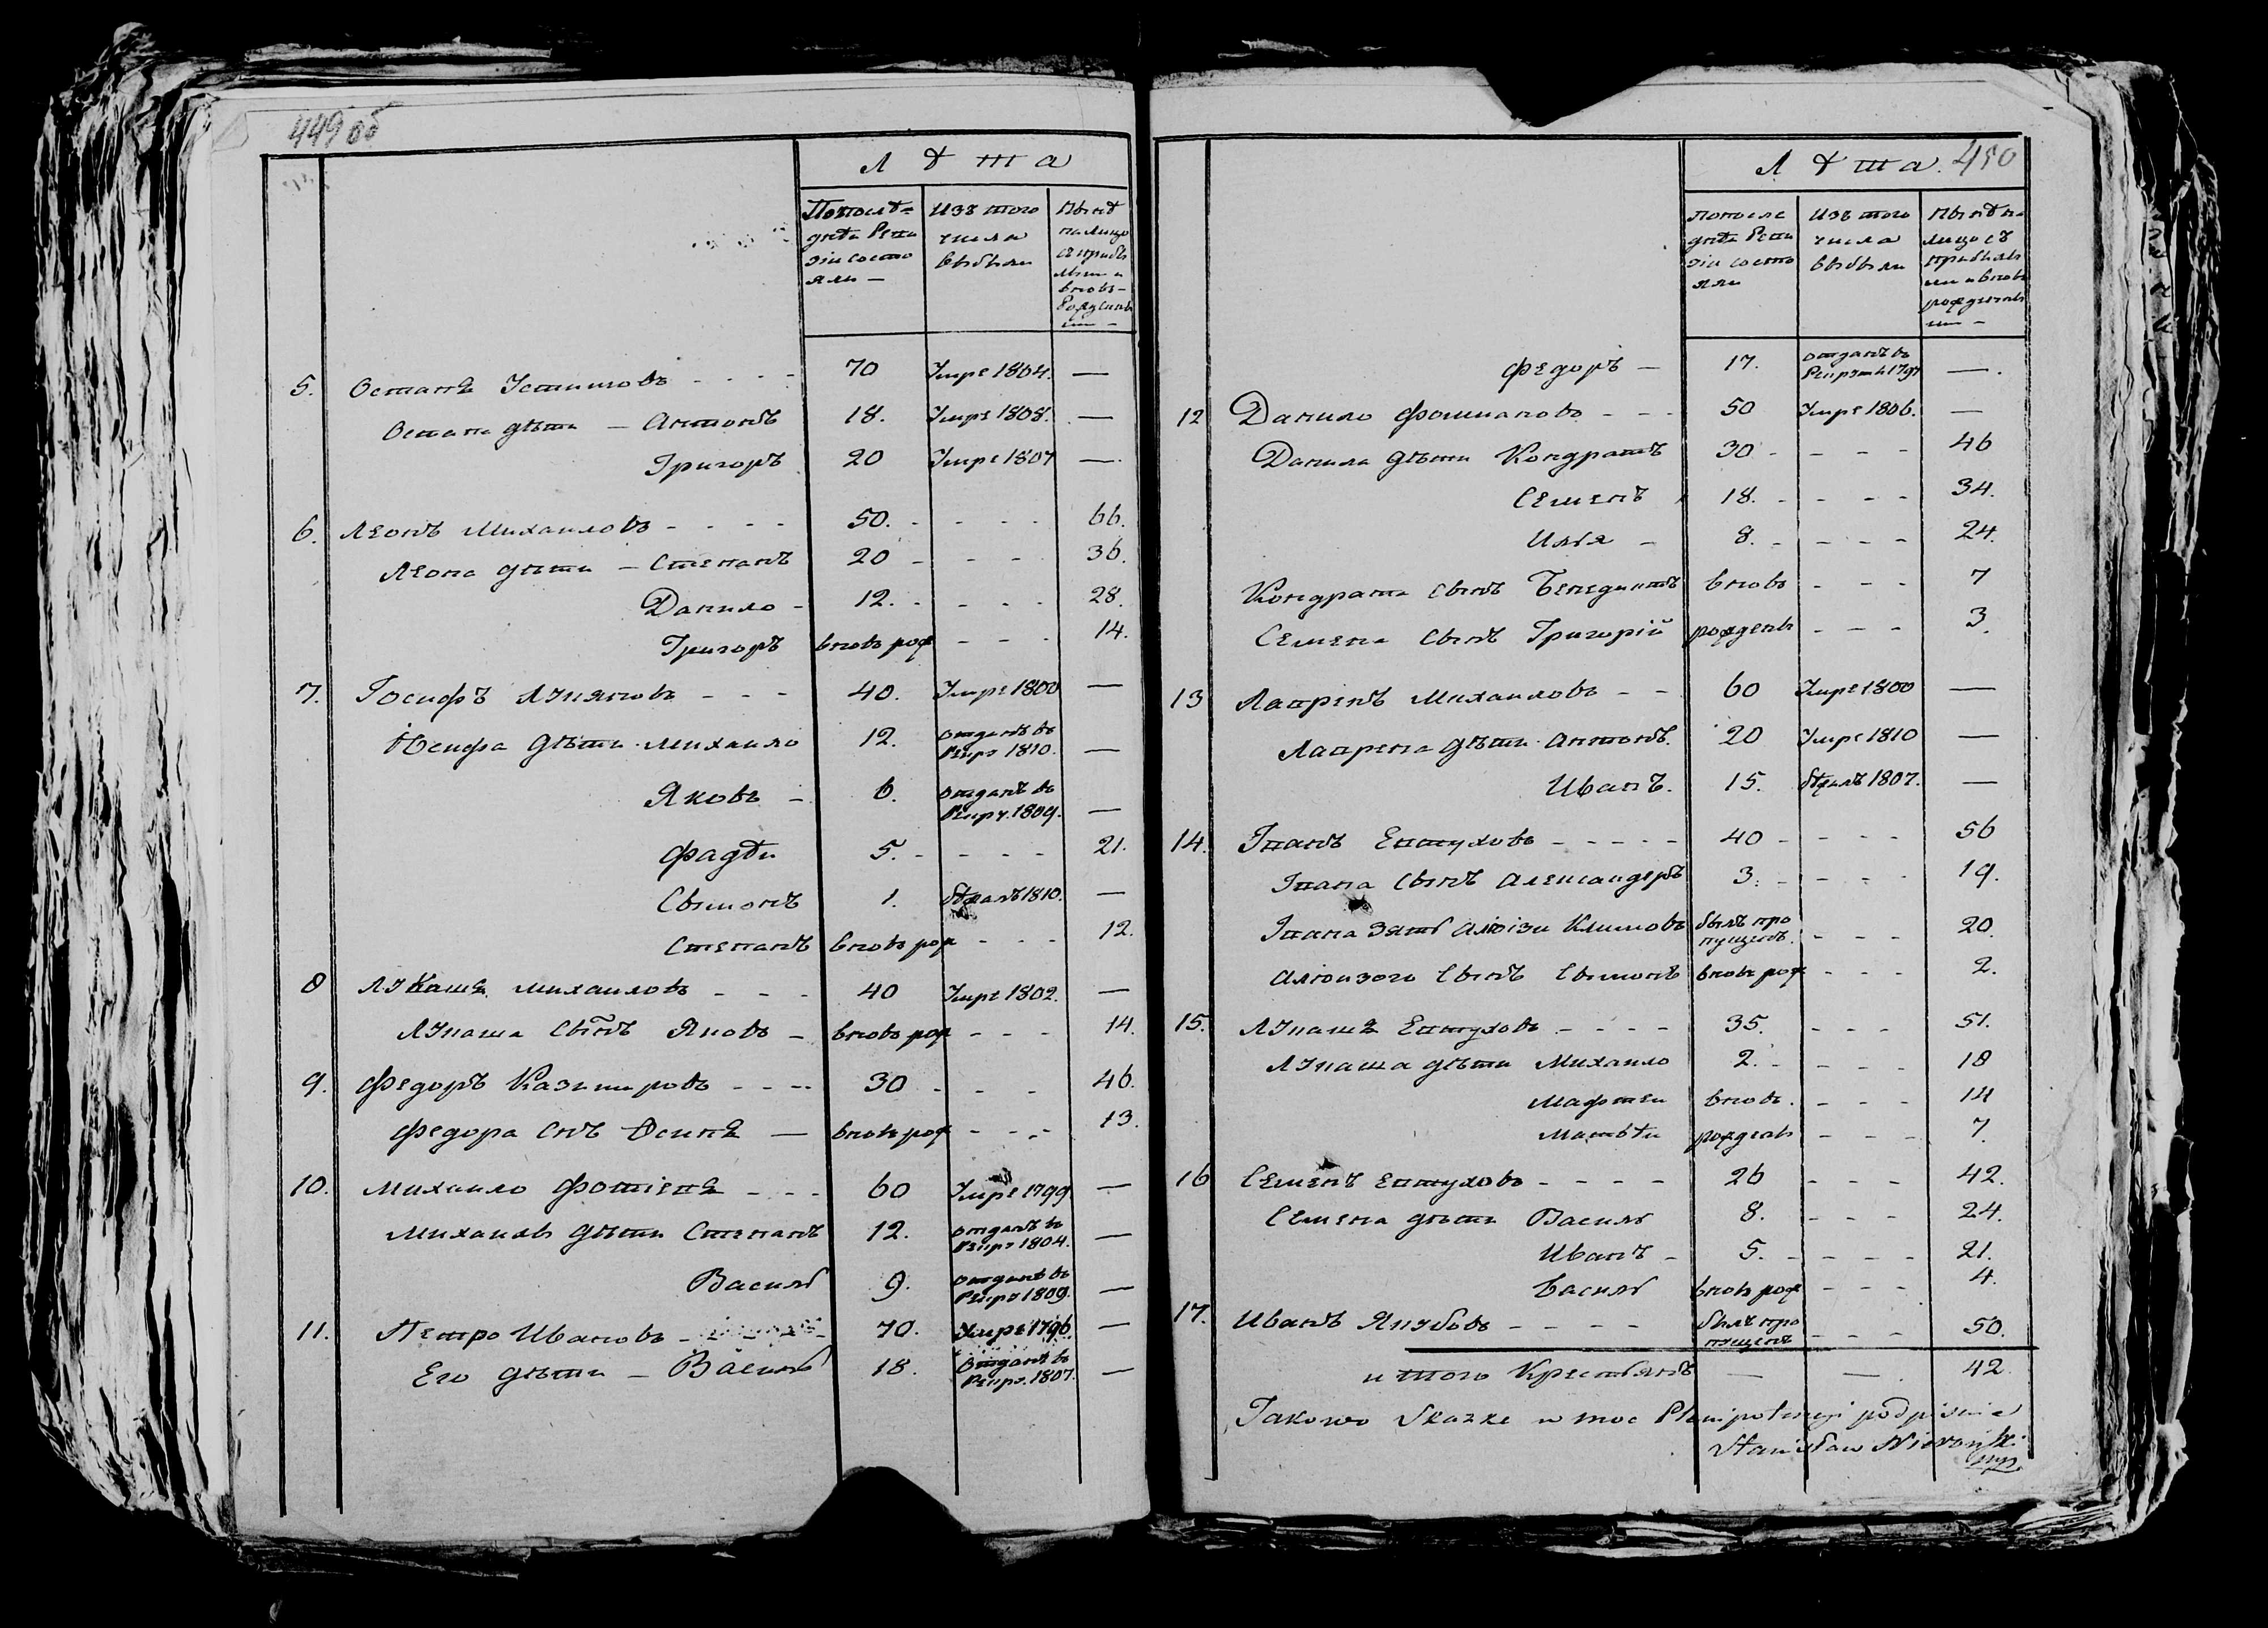 449 об
Л ѣ т а
По послѣдней Ревизіи состояли —
Изъ того числа выбыли
Нынѣ на лицо съ прибылыми и вновь рожденными —
5. Остапъ Устиновъ - - - - 70 Умре 1804. —
Остапа дѣти — Антонъ 18. Умре 1808. —
Григоръ 20 Умре 1807 —
6. Леонъ Михаиловъ - - - - 50. - - - - 66.
Леона дѣти — Степанъ 20 - - - 36.
Данило - 12. - - - - 28.
Григоръ вновь рож - - - 14.
7. Іосифъ Лукяновъ - - - 40. Умре 1800 —
Іосифа дѣти Михаило 12. отданъ въ Рекру 1810. —
Яковъ — 6. отданъ въ Рекру. 1809. —
Фадѣи 5. - - - - 21.
Сымонъ 1. бѣжалъ 1810. —
Степанъ вновь рож - - - 12.
8 Лукашъ Михаиловъ - - - 40 Умре 1802. —
Лукаша Сынъ Яковъ — вновь рож - - - 14.
9. Федоръ Казимировъ - - - - 30 - - - 46.
Федора Снъ Осипъ — вновь рож - - - 13.
10. Михаило Фотіевъ - - - 60 Умре 1799 —
Михаила дѣти Степанъ 12. отданъ въ Рекру 1804. —
Василь 9. отданъ въ Рекру 1809. —
11. Петро Ивановъ - 70. Умре 1796. —
Его дѣти — Василь 18. Отданъ въ Рекру. 1807. —
450
Л ѣ т а.
по после дней Ревизіи состояли
Изъ того числа выбыли
Нынѣ на лицо съ прибылыми и вновь рожденными —
Федоръ — 17. отданъ въ Рекруты 1797 —.
12 Данило Фошмановъ - - - 50 Умре 1806. —
Данила дѣти Кондратъ 30 - - - - 46
Семенъ 18. - - - - 34.
Илья - 8. - - - - 24.
Кондрата сынъ Бенедиктъ вновь - - - 7
Семена Сынъ Григорій рождены - - - 3.
13 Лавренъ Михаиловъ - - 60 Умре 1800 —
Лаврена дѣти Антонъ. 20 Умре 1810 —
Иванъ. 15. бѣжалъ 1807. —
14. Іванъ Евтуховъ - - - - - 40 - - - - 56
Івана Сынъ Александеръ 3. - - - - 19.
Івана Зять Алоізи Климовъ былъ пропущенъ. - - - 20.
Алоизого Сынъ Сымонъ вновь рож - - - 2.
15. Лукашъ Евтуховъ - - - - 35. - - - 51.
Лукаша дѣти Михаило 2. - - - - 18
Мафтеи вновь. - - - 14
Матвѣи рождены - - - 7.
16 Семенъ Евтуховъ - - - - 26 - - - 42.
Семена дѣти Василь 8. - - - 24.
Иванъ - 5. - - - - 21.
Василь вновь рож - - - 4.
17. Иванъ Якубовъ - - - - былъ пропущенъ - - - 50.
и того Крестьянъ — —. 42
Jakowo Skazke w moc Plenipotencyi podpisuie
Stanisław
mp.